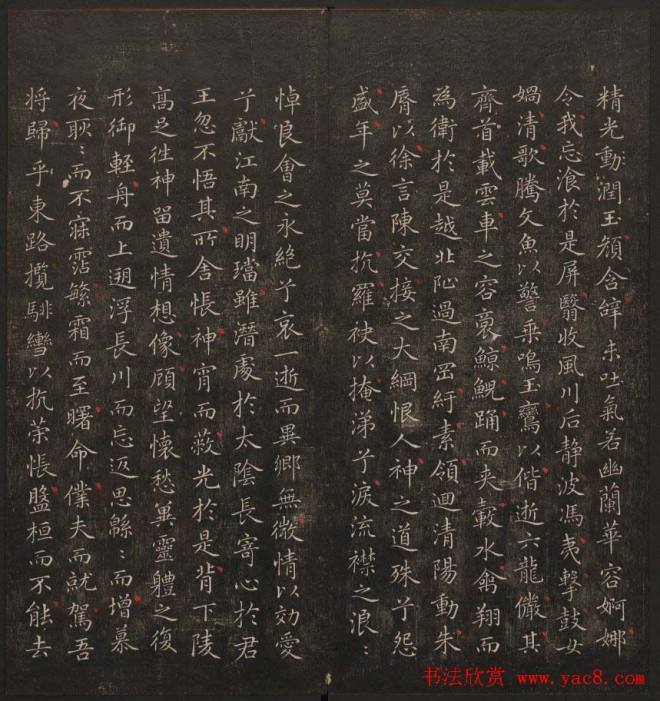 精光動潤玉顏含辭未吐氣若幽蘭華容婀娜
令我忘飡於是屏翳收風川后静波馮夷擊鼓女
媧清歌騰文魚以警乗鳴玉鸞以偕逝六龍儼其
齊首載雲車之容裔鯨鯢踊而夾轂水禽翔而
為衛於是越北沚過南罡紆素領迴清陽動朱
脣以徐言陳交接之大綱恨人神之道殊兮怨
盛年之莫當抗羅袂以掩涕兮淚流襟之浪〻
悼良會之永絶兮哀一逝而異鄉無微情以効愛
兮獻江南之明璫雖潛處於太陰長寄心於君
王忽不悟其所舍悵神宵而蔽光於是背下陵
髙足往神留遺情想像顧望懷愁冀靈軆之復
形御輕舟而上遡浮長川而忘返思緜〻而增慕
夜耿〻而不寐霑繁霜而至曙命僕夫而就駕吾
将歸乎東路攬騑轡以抗策悵盤桓而不能去
书法欣赏 www.yac8.com